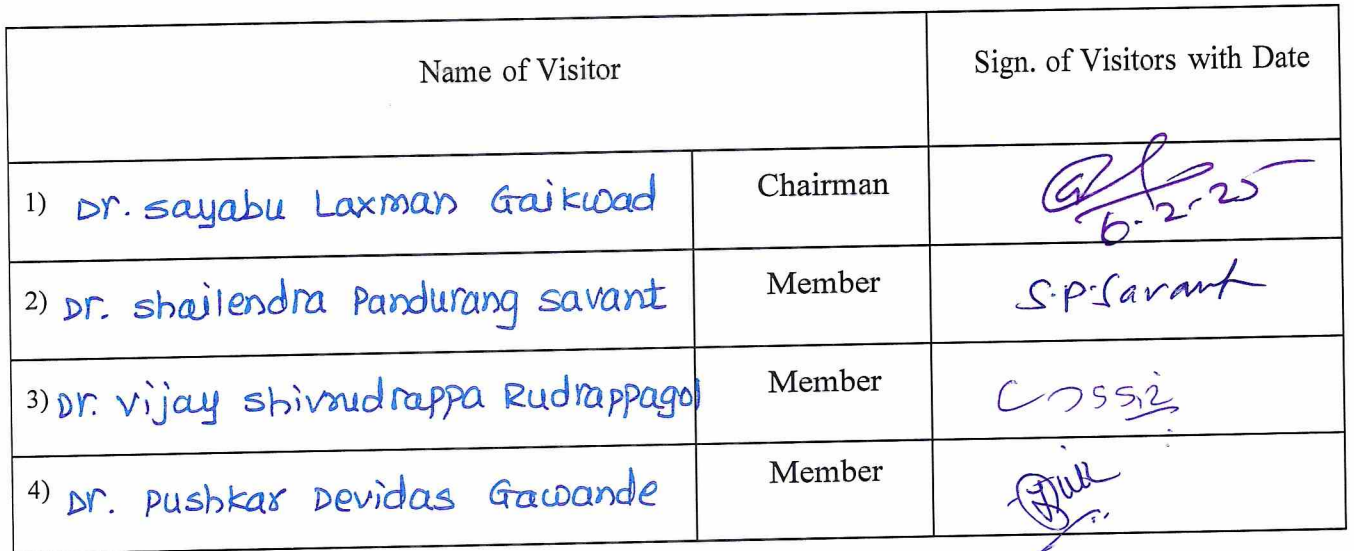 Name of Visitor
Sign. of Visitors with Date
1) Dr. Sayabu Laxman Gaikwad
Chairman
6-2-25
2) Dr. Shailendra Pandurang Savant
Member
S.P.Savant
3) Dr. Vijay Shivrudrappa Rudrappagol
Member
4) Dr. Pushkar Devidas Gawande
Member